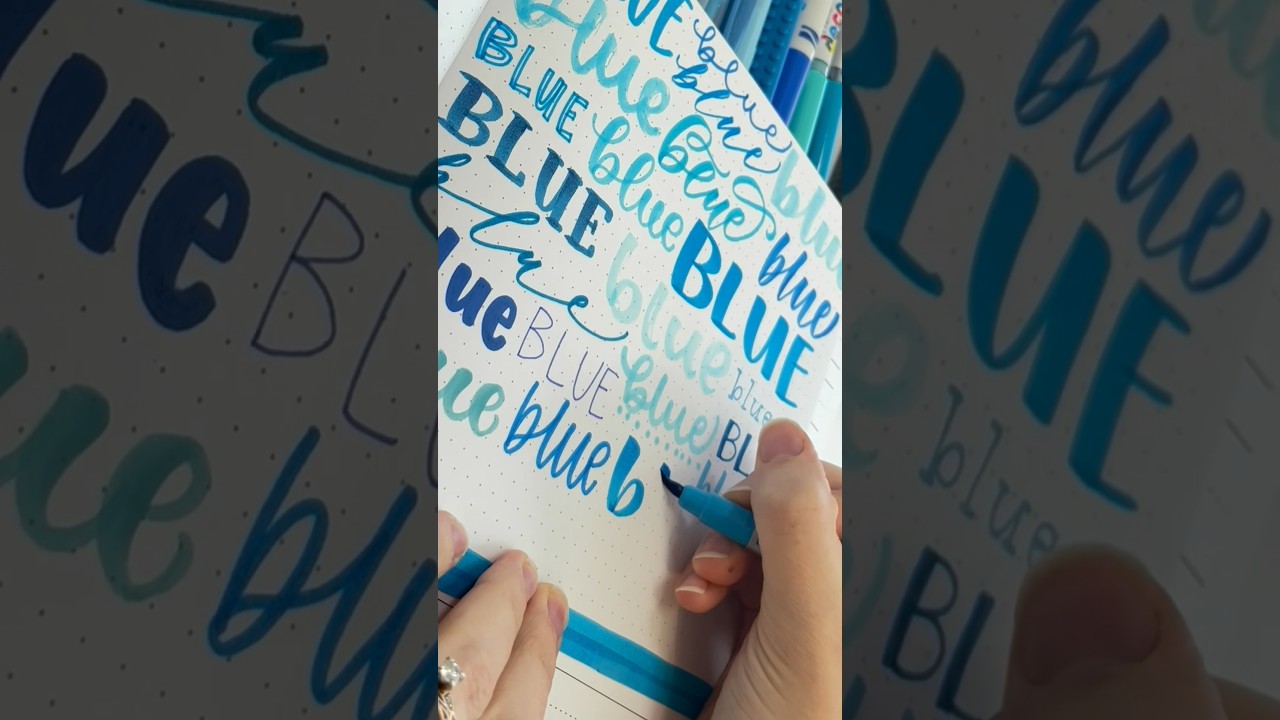 blue LUE blue
BLUE blue blue blue blu
BLUE blue BLUE blue
blue blue blue
lue BLUE blue BL
ue blue b bl